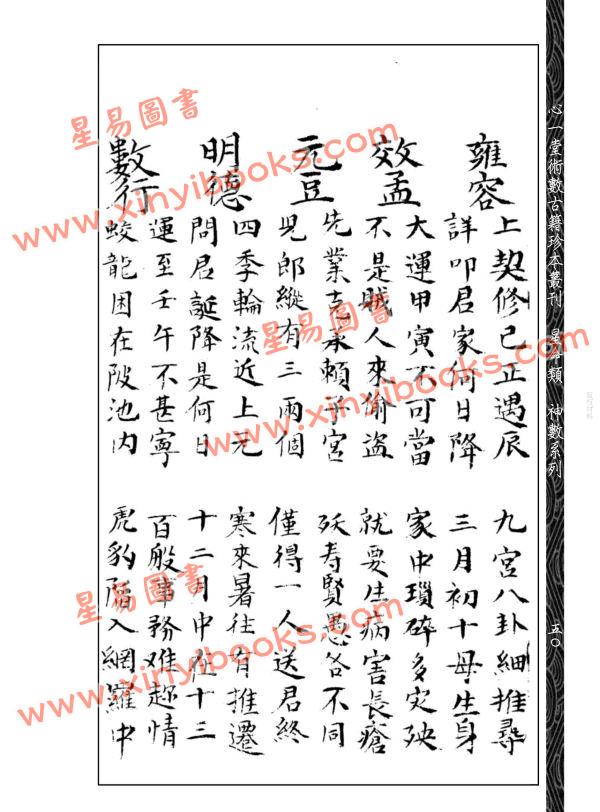 心一堂術數古籍珍本叢刊 星命類 神數系列
五〇
雍容
上契修己正遇辰 九宮八卦細推尋
詳叩君家何日降 三月初十母生身
效孟
大運甲寅不可當 家中瑣碎多灾殃
不是賊人來偷盜 就要生病害長瘡
元豆
先業克承賴子宮 殀寿賢愚各不同
児郎縱有三兩個 僅得一人送君終
明德
四季輪流近上元 寒來暑往有推遷
問君誕降是何日 十二月中在十三
數行
運至壬午不甚寧 百般事務难趁情
蛟龍困在陂池内 虎豹陷入網羅中
星易圖書
www.xinyibooks.com
星易圖書
www.xinyibooks.com
星易圖書
www.xinyibooks.com